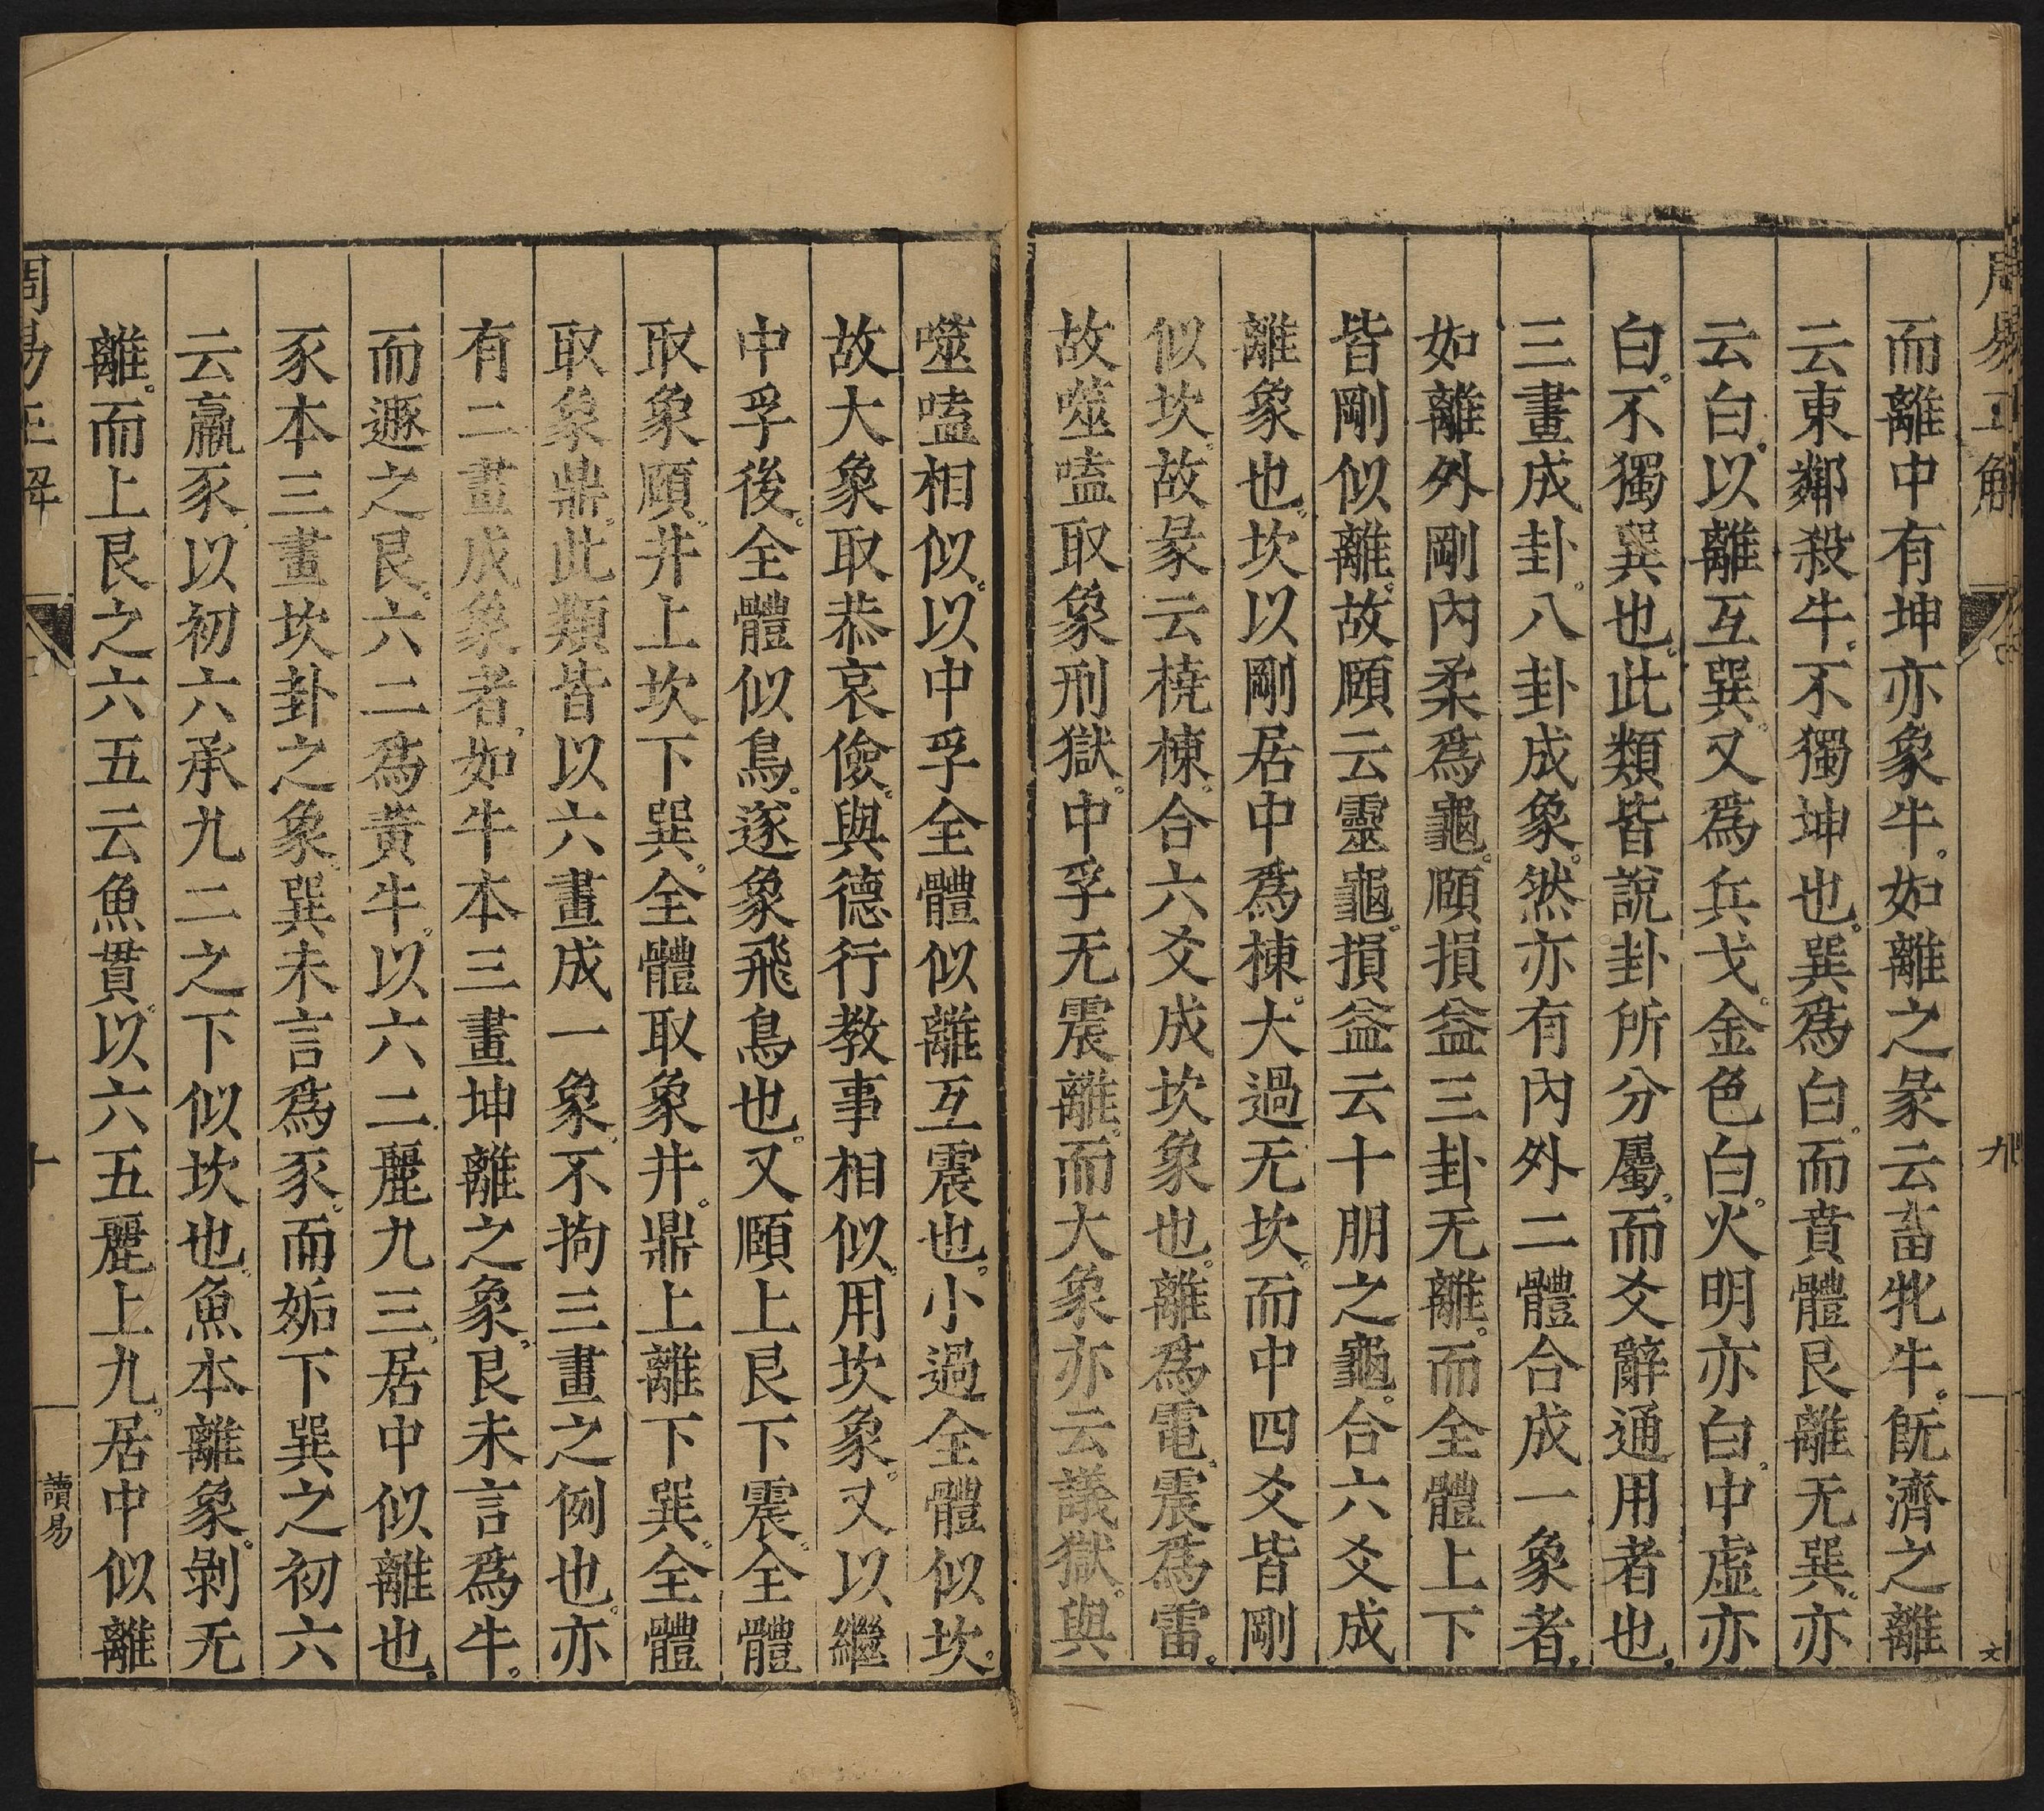 周易正解
九
文
而離中有坤亦象牛。如離之彖云畜牝牛。旣濟之離
云東鄰殺牛。不獨坤也。巽爲白。而賁體艮離无巽。亦
云白。以離互巽。又爲兵戈。金色白。火明亦白。中虛亦
白。不獨巽也。此類皆說卦所分屬。而爻辭通用者也。
三畫成卦。八卦成象。然亦有內外二體合成一象者。
如離外剛內柔爲龜。頤損益三卦无離。而全體上下
皆剛似離。故頤云靈龜。損益云十朋之龜。合六爻成
離象也。坎以剛居中爲棟。大過无坎。而中四爻皆剛
似坎。故彖云橈棟。合六爻成坎象也。離爲電。震爲雷。
故噬嗑取象刑獄。中孚无震離。而大象亦云議獄。與
噬嗑相似。以中孚全體似離互震也。小過全體似坎。
故大象取恭哀儉。與德行教事相似。用坎象。又以繼
中孚後。全體似鳥。遂象飛鳥也。又頤上艮下震。全體
取象頤。井上坎下巽。全體取象井。鼎上離下巽。全體
取象鼎。此類皆以六畫成一象。不拘三畫之例也。亦
有二畫成象者。如牛本三畫坤離之象。艮未言爲牛。
而遯之艮。六二爲黃牛。以六二麗九三。居中似離也。
豕本三畫坎卦之象。巽未言爲豕。而姤下巽之初六
云羸豕。以初六承九二之下似坎也。魚本離象。剝无
離。而上艮之六五云魚貫。以六五麗上九。居中似離
周易正解
十
讀易